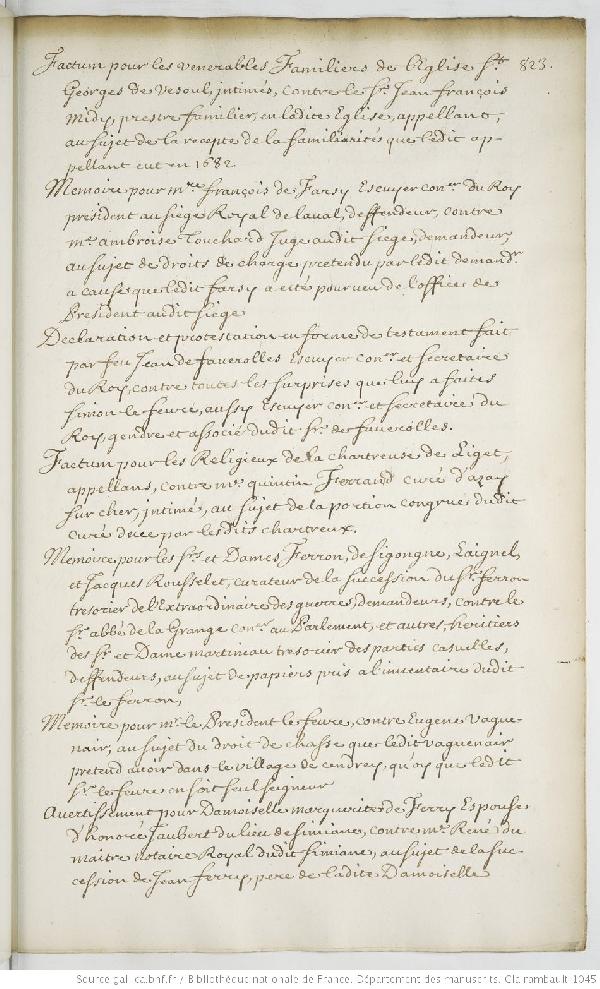 Factum pour les venerables Familiers de l'Eglise St. 823.
Georges de Vesoul, intimés, contre le Sr. Jean françois
Midy, prestre familier, en ladite Eglise, appellant,
au sujet de la recepte de la familiarités que ledit ap-
pellant eut en 1682
Memoire pour mre. françois de Farsy Escuyer coner. du Roy
president au siege Royal de laval, deffendeur, contre
me. ambroise Touchard Juge audit siege, demandeur,
au sujet de droits de charge pretendu par ledit demandr.
a cause que ledit farsy a esté pourveu de l'office de
President audit siege
Declaration et protestation en forme de testament fait
par feu Jean de faverolles Escuyer coner. et secretaire
du Roy, contre toutes les surprises que luy a faites
simon le feure, aussy Escuyer coner. et secretaire du
Roy, gendre et associé dudit Sr. de faverolles.
Factum pour les Religieux de la chartreuse de Liget,
appellans, contre me. quintin Ferrand curé d'azay
sur cher, intimé, au sujet de la portion congrue dudit
curé deue par lesdits chartreux.
Memoire pour les Srs. et Dames Ferron, de Sigongne, Laignel,
et Jacques Rousselet, curateur de la succession du Sr. ferron
tresorier de l'Extraordinaire des guerres, demandeurs, contre le
Sr. abbé de la Grange coner. au Parlement, et autres, heritiers
des Sr. et Dame martineau tresorier des parties casuelles,
deffendeurs, au sujet de papiers pris a l'inventaire dudit
Sr. le ferron,
Memoire pour mr. le President le feure, contre Eugene Vaque-
nair, au sujet du droit de chasse que ledit vaquenair
pretend avoir dans le village de cendrey, quoy que ledit
Sr. le feure en soit seul seigneur
Avertissement pour Damoiselle marguerite de Ferry Espouse
d'honoré Jaubert du lieu de simiane, contre me. René du
maitre notaire Royal dudit simiane, au sujet de la suc-
cession de Jean ferry, pere de ladite Damoiselle
Source gallica.bnf.fr / Bibliothèque nationale de France. Département des manuscrits. Clairambault 1045